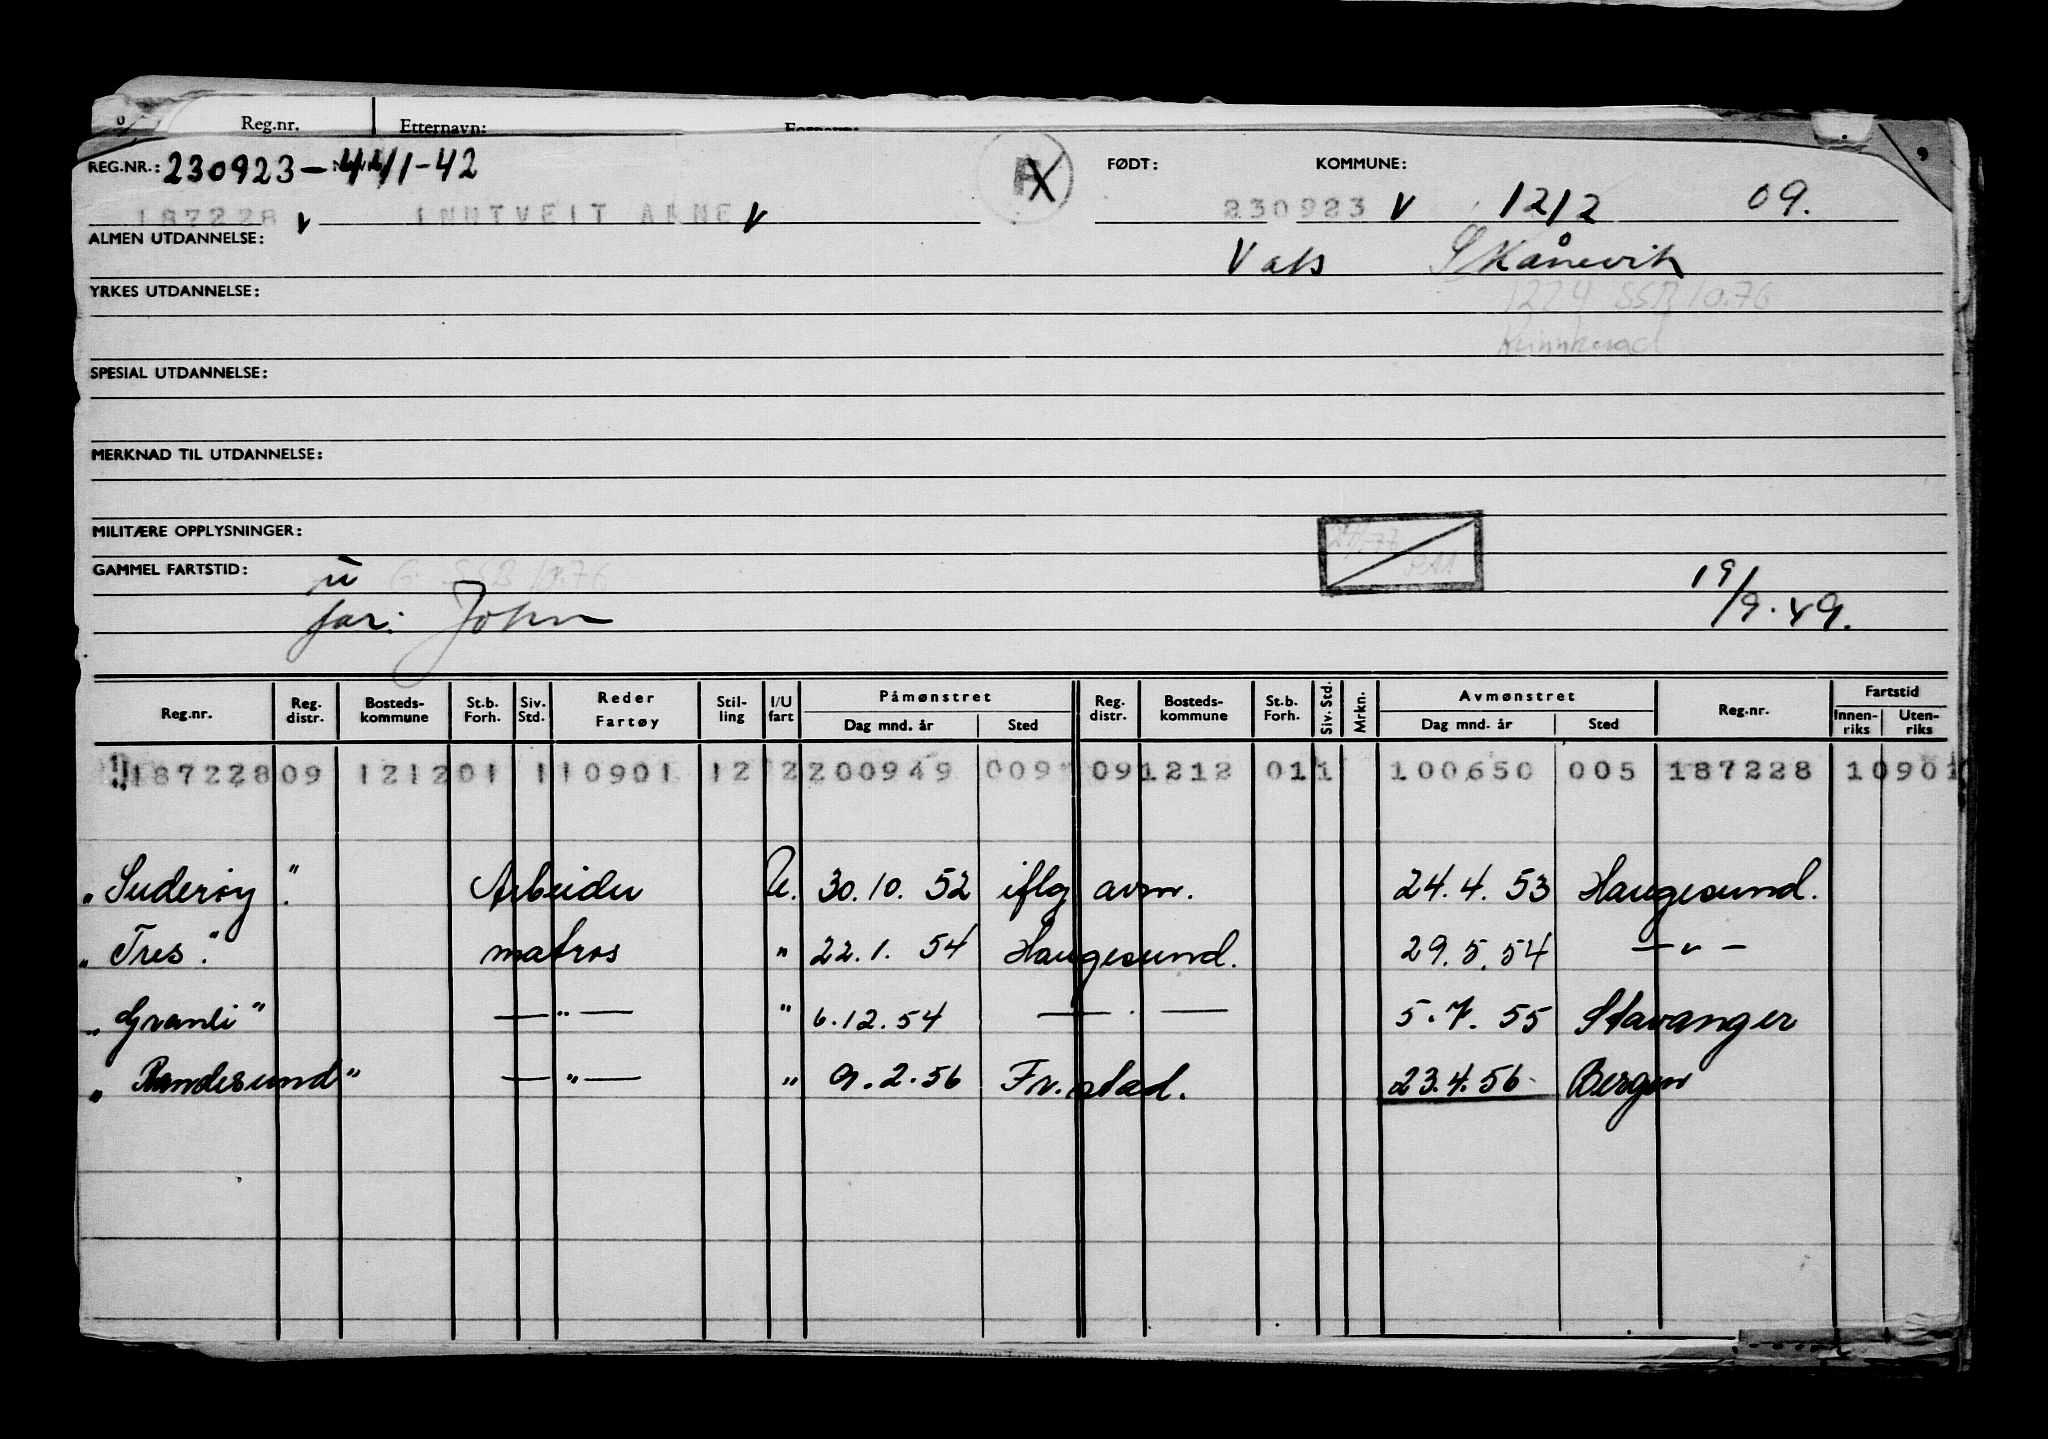 Reg.nr. Etternavn: Fornavn:
REG.NR.: 230923-441-42 FØDT: KOMMUNE:
187228 V INNTVEIT ARNE V 230923 V 1212 09.
ALMEN UTDANNELSE: Vats Skånevik
YRKES UTDANNELSE: 1224 SSB 10.76
Kvinnherad
SPESIAL UTDANNELSE:
MERKNAD TIL UTDANNELSE:
MILITÆRE OPPLYSNINGER:
GAMMEL FARTSTID: ü G. SSB 10.76
far: John 19/9.49.
Reg.nr. Reg. distr. Bosteds-kommune St.b. Forh. Siv. Std. Reder Fartøy Stil-ling I/U fart Påmønstret Dag mnd. år Sted Reg. distr. Bosteds-kommune St.b. Forh. Siv. Std. Mrkn. Avmønstret Dag mnd. år Sted Reg.nr. Fartstid Innen-riks Uten-riks
187228 09 1212 01 1 10901 12 2 200949 009 09 1212 01 1 100650 005 187228 10901
"Suderøy" Arbeider U. 30.10.52 iflg avm. 24.4.53 Haugesund.
"Tres." matros " 22.1.54 Haugesund. 29.5.54 — " —
"Granli" — " — " 6.12.54 — " — 5.7.55 Stavanger
"Randesund" — " — " 9.2.56 Fr.stad. 23.4.56 Bergen